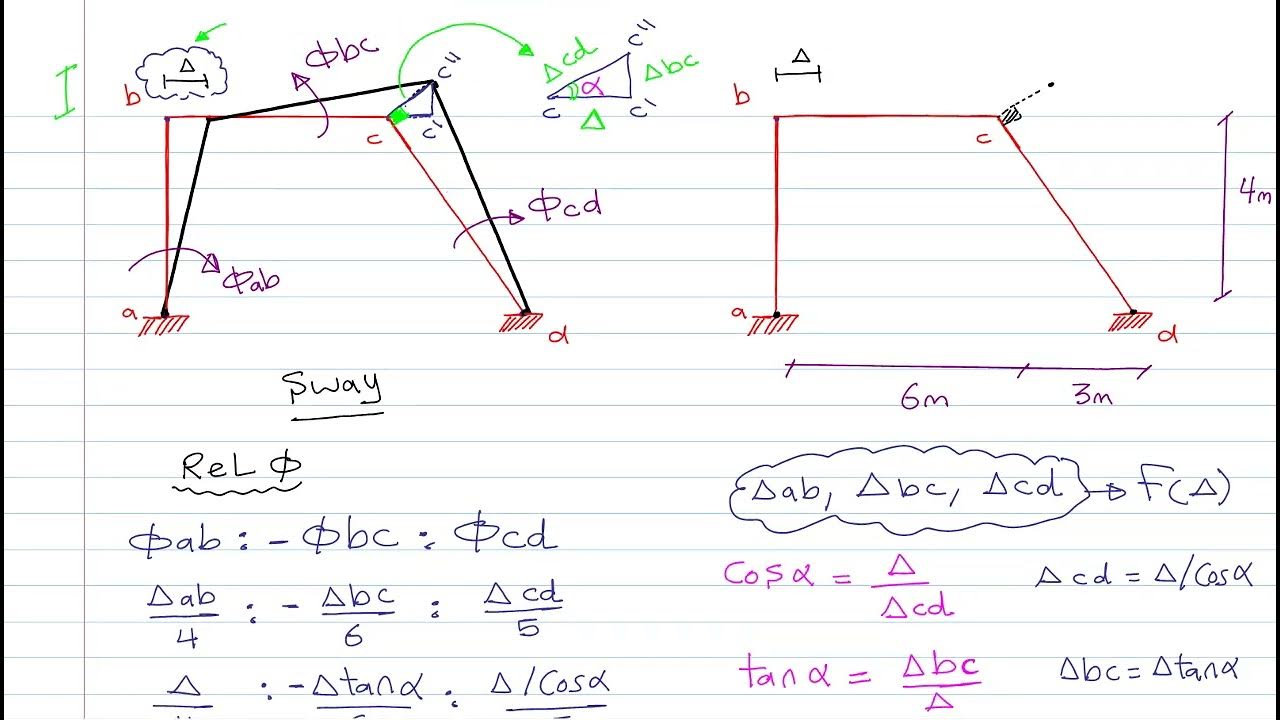 Δ
b
ϕbc
c"
c
c'
Δcd
α
c"
Δbc
c
c'
Δ
ϕcd
ϕab
a
d
Δ
b
c
4m
a
d
6m
3m
Sway
ReL ϕ
ϕab : - ϕbc : ϕcd
Δab/4 : - Δbc/6 : Δcd/5
Δ : -Δtanα : Δ/Cosα
Δab, Δbc, Δcd → F(Δ)
Cosα = Δ/Δcd
Δcd = Δ/Cosα
tanα = Δbc/Δ
Δbc = Δtanα